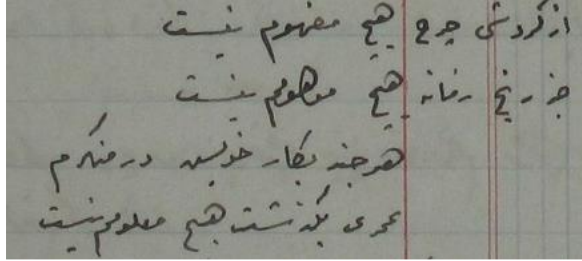 از گردش چرخ هیچ مفهوم نیست
جز رنج زمانه هیچ موهوم نیست
هر چند بکار خویش در می‌نگرم
عمری بگذشت هیچ معلوم نیست